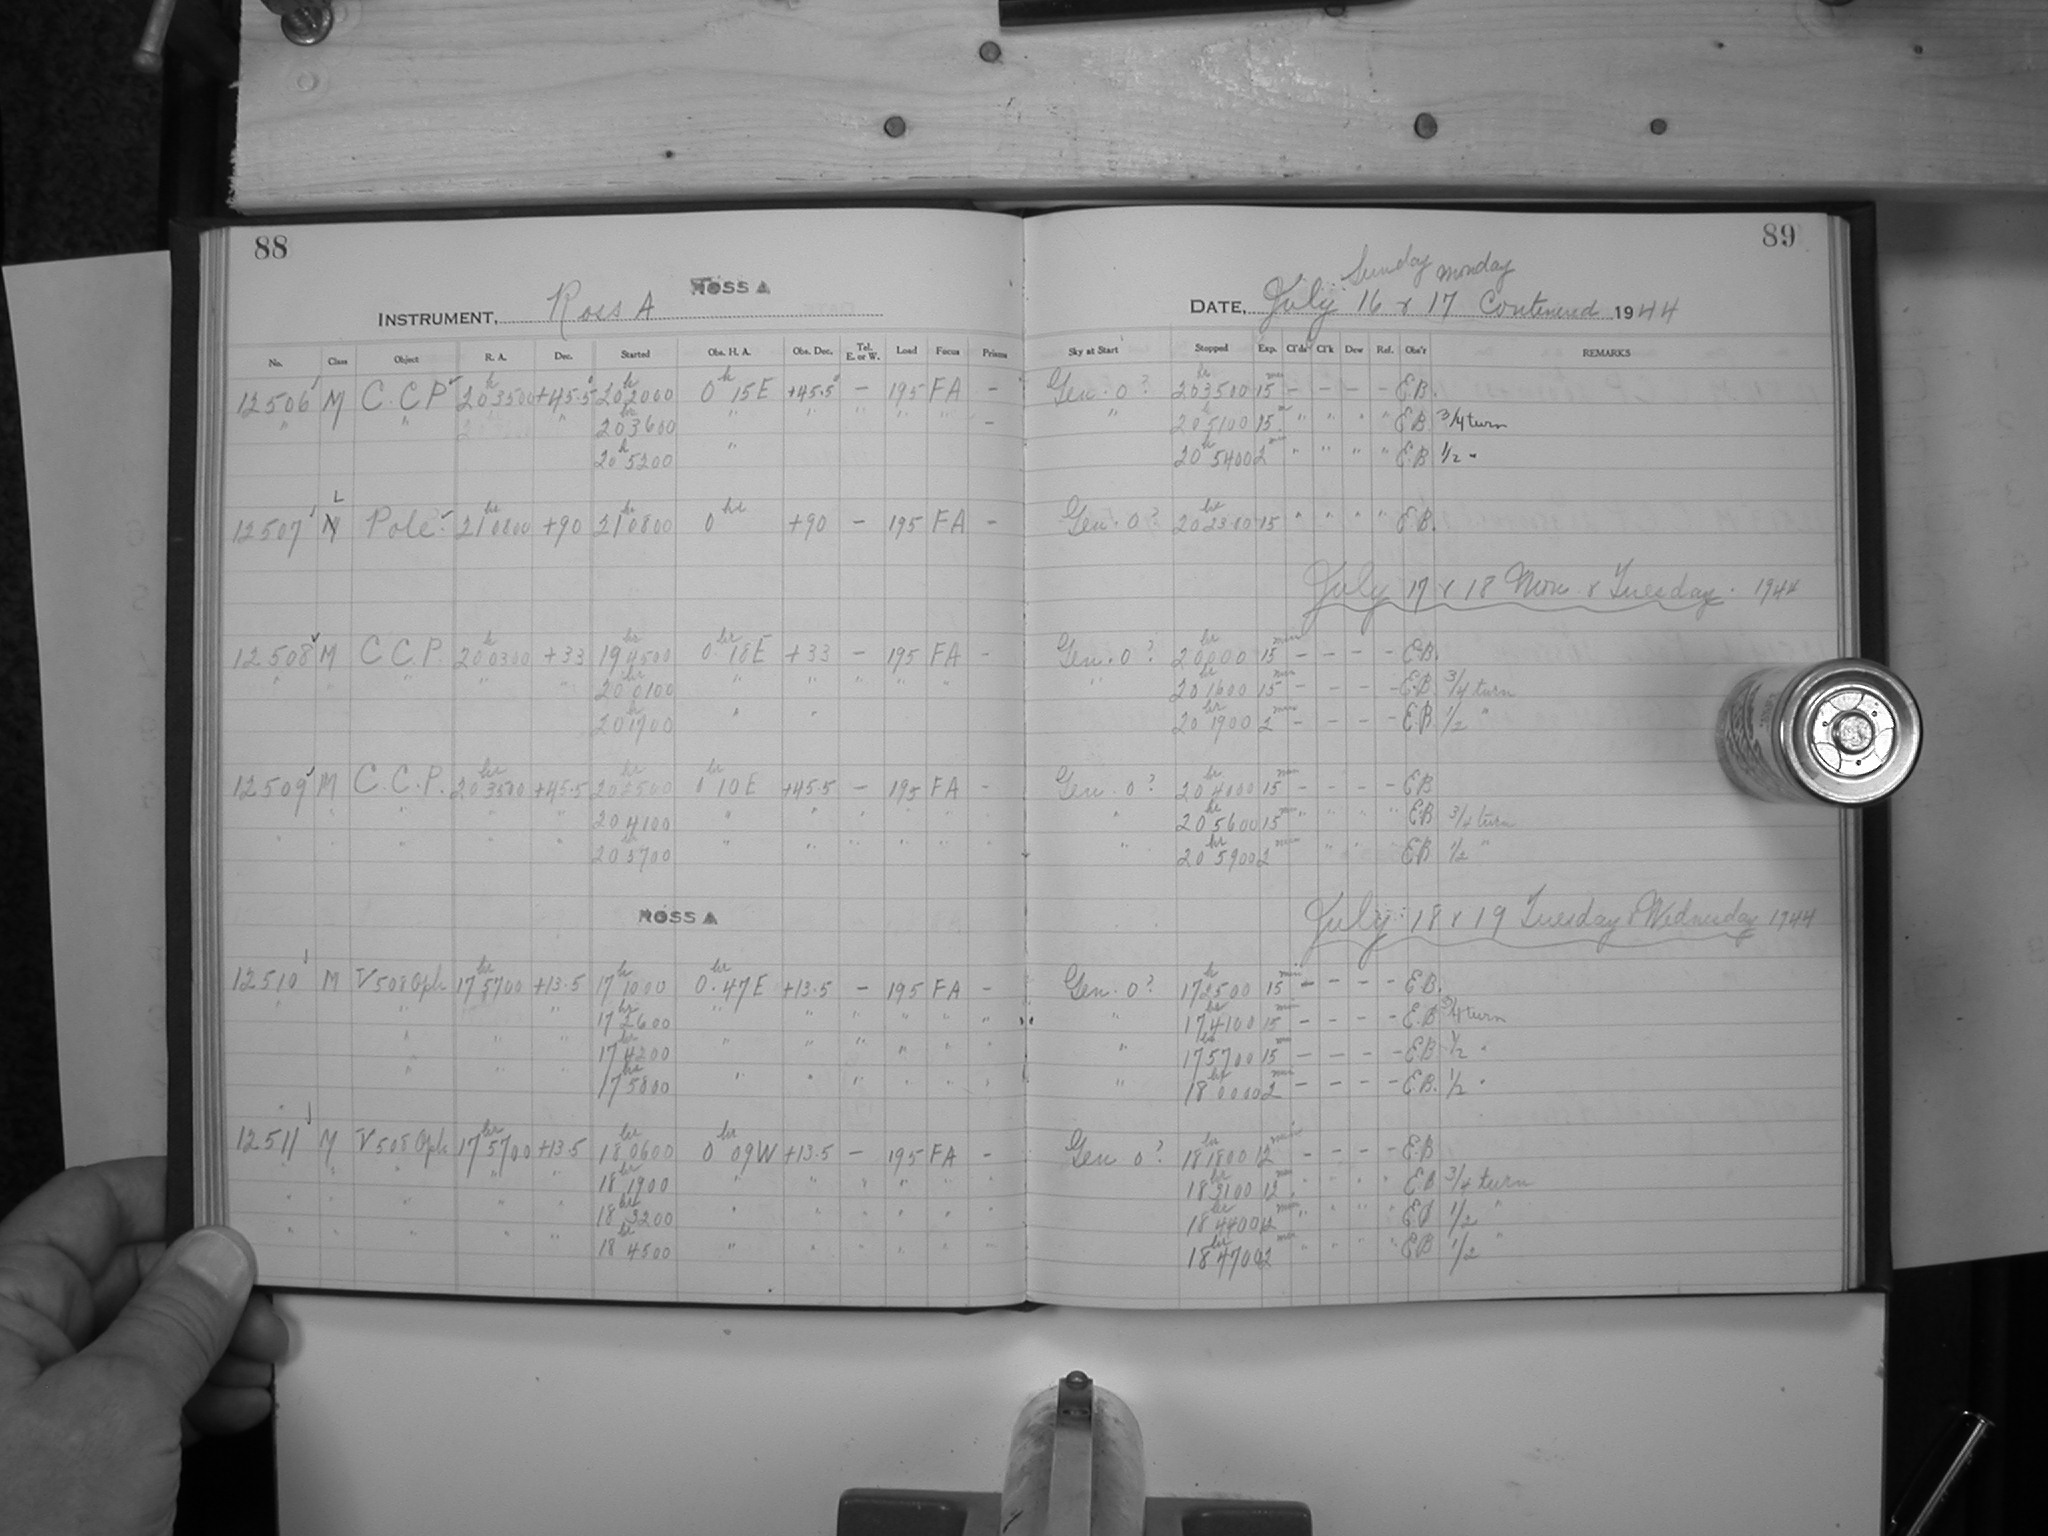 88
ROSS A
INSTRUMENT, Ross A
No. Class Object R. A. Dec. Started Obs. H. A. Obs. Dec. Tel. E. or W. Load Focus Prisms
12506 M C.C P 20h3500 +45.5° 20h2000 0h 15E +45.5° - 195 FA -
" " " 20hr3600 " " " " " -
20h5200 "
L
12507 M Pole 21hr0800 +90 21hr0800 0hr +90 - 195 FA -
12508 M C C P. 20h0300 +33 19hr4500 0hr 18E +33 - 195 FA -
" " " " " 20hr0100 " " " " "
20h1700 " "
12509 M C.C.P. 20hr3500 +45.5 20hr2500 0hr 10E +45.5 - 195 FA -
" " " " " 20 4100 " " " " " "
" " " " " 20hr5700 " " " " " "
ROSS A
12510 M V508 Oph 17hr5700 +13.5 17h1000 0hr.47E +13.5 - 195 FA -
" " " 17hr2600 " " " " " "
" " " 17hr4200 " " " " " "
" " " 17hr5800 " " " " " "
12511 M V508 Oph 17hr5700 +13.5 18hr0600 0hr 09W +13.5 - 195 FA -
" " " " " 18hr1900 " " " " " "
" " " " 18hr3200 " " " " " "
" " " " 18hr4500 " " " " " "
89
Sunday Monday
DATE, July 16 & 17 Contenued 1944
Sky at Start Stopped Exp. Cl'ds Cl'k Dew Ref. Obs'r REMARKS
Gen. 0? 20hr3500 15min - - - - E.B.
" 20h5100 15m " " " " EB 3/4 turn
20h5400 2m " " " " E.B 1/2 "
Gen. 0? 20hr2300 15 " " " " E.B.
July 17 & 18 Mon. & Tuesday. 1944
Gen. 0? 20hr0000 15min - - - - E.B.
" 20hr1600 15min - - - - E.B 3/4 turn
20hr1900 2min - - - - E.B. 1/2 "
Gen. 0? 20hr4000 15min - - - - EB
" 20hr5600 15min " " " " EB 3/4 turn
" 20hr5900 2min " " " EB 1/2 "
July 18 & 19 Tuesday & Wednesday 1944
Gen. 0? 17h2500 15min - - - - E.B.
" 17hr4100 15min - - - - E.B 3/4 turn
" 17hr5700 15min - - - - EB 1/2 "
" 18hr0000 2min - - - - E.B. 1/2 "
Gen 0? 18hr1800 12min - - - - E.B
18hr3100 12min " " " " EB 3/4 turn
18hr4400 12min " " " " EB 1/2 "
18hr4700 2min " " " " EB 1/2 "